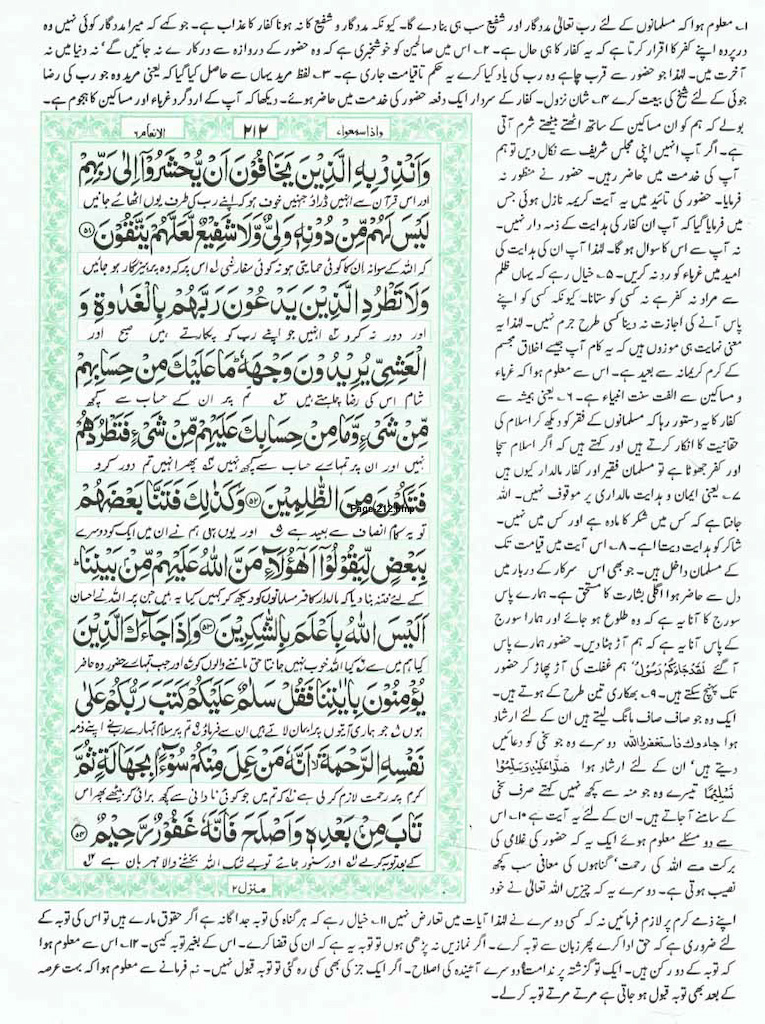 ۱۔ معلوم ہوا کہ مسلمانوں کے لئے رب تعالیٰ مددگار اور شفیع سب ہی بنا دے گا۔ کیونکہ مددگار و شفیع کا نہ ہونا کفار کا عذاب ہے۔ جو کہے کہ میرا مددگار کوئی نہیں وہ
درپردہ اپنے کفر کا اقرار کرتا ہے کہ یہ کفار کا ہی حال ہے۔ ۲۔ اس میں صالحین کو خوشخبری ہے کہ وہ حضور کے دروازہ سے درکارے نہ جائیں گے' نہ دنیا میں نہ
آخرت میں۔ لہٰذا جو حضور سے قرب چاہے وہ رب کی یاد کیا کرے یہ حکم تاقیامت جاری ہے۔ ۳۔ لفظ مرید یہاں سے حاصل کیا گیا کہ یعنی مرید وہ جو رب کی رضا
جوئی کے لئے شیخ کی بیعت کرے ۴۔ شان نزول۔ کفار کے سردار ایک دفعہ حضور کی خدمت میں حاضر ہوئے۔ دیکھا کہ آپ کے اردگرد غرباء اور مساکین کا ہجوم ہے۔
بولے کہ ہم کو ان مساکین کے ساتھ اٹھتے بیٹھتے شرم آتی
ہے۔ اگر آپ انہیں اپنی مجلس شریف سے نکال دیں تو ہم
آپ کی خدمت میں حاضر رہیں۔ حضور نے منظور نہ
فرمایا۔ حضور کی تائید میں یہ آیت کریمہ نازل ہوئی جس
میں فرمایا گیا کہ آپ ان کفار کی ہدایت کے ذمہ دار نہیں۔
نہ آپ سے اس کا سوال ہو گا۔ لہٰذا آپ ان کی ہدایت کی
امید میں غرباء کو رد نہ کریں۔ ۵۔ خیال رہے کہ یہاں ظلم
سے مراد نہ کفر ہے نہ کسی کو ستانا۔ کیونکہ کسی کو اپنے
پاس آنے کی اجازت نہ دینا کسی طرح جرم نہیں۔ لہٰذا یہ
معنی نہایت ہی موزوں ہیں کہ یہ کام آپ جیسے اخلاق مجسم
کے کرم کریمانہ سے بعید ہے۔ اس سے معلوم ہوا کہ غرباء
و مساکین سے الفت سنت انبیاء ہے۔ ۶۔ یعنی ہمیشہ سے
کفار کا یہ دستور رہا کہ مسلمانوں کے فقر کو دیکھ کر اسلام کی
حقانیت کا انکار کرتے ہیں اور کہتے ہیں کہ اگر اسلام سچا
اور کفر جھوٹا ہے تو مسلمان فقیر اور کفار مالدار کیوں ہیں
۷۔ یعنی ایمان و ہدایت مالداری پر موقوف نہیں۔ اللہ
جانتا ہے کہ کس میں شکر کا مادہ ہے اور کس میں نہیں۔
شاکر کو ہدایت دیتا ہے۔ ۸۔ اس آیت میں قیامت تک
کے مسلمان داخل ہیں۔ جو بھی اس سرکار کے دربار میں
دل سے حاضر ہوا اگلی بشارت کا مستحق ہے۔ ہمارے پاس
سورج کا آنا یہ ہے کہ وہ طلوع ہو جائے اور ہمارا سورج
کے پاس آنا یہ ہے کہ ہم آڑ ہٹا دیں۔ حضور ہمارے پاس
آ گئے لَقَدْ جَاءَكُمْ رَسُوْلٌ' ہم غفلت کی آڑ پھاڑ کر حضور
تک پہنچ سکتے ہیں۔ ۹۔ بھکاری تین طرح کے ہوتے ہیں۔
ایک وہ جو صاف صاف مانگ لیتے ہیں ان کے لئے ارشاد
ہوا جاءوك فاستغفروا الله دوسرے وہ جو سخی کو دعائیں
دیتے ہیں' ان کے لئے ارشاد ہوا صَلُّوْا عَلَيْهِ وَسَلِّمُوْا
تَسْلِيْمًا تیسرے وہ جو منہ سے کچھ نہیں کہتے صرف سخی
کے سامنے آ جاتے ہیں۔ ان کے لئے یہ آیت ہے ۱۰۔ اس
سے دو مسئلے معلوم ہوئے ایک یہ کہ حضور کی غلامی کی
برکت سے اللہ کی رحمت' گناہوں کی معافی سب کچھ
نصیب ہوتی ہے۔ دوسرے یہ کہ چیزیں اللہ تعالیٰ نے خود
واذا سمعوا۷ ۲۱۲ الانعام۶
وَاَنْذِرْ بِهِ الَّذِيْنَ يَخَافُوْنَ اَنْ يُّحْشَرُوْۤا اِلٰى رَبِّهِمْ
اور اس قرآن سے انہیں ڈراؤ جنہیں خوف ہو کہ اپنے رب کی طرف یوں اٹھائے جائیں
لَيْسَ لَهُمْ مِّنْ دُوْنِهٖ وَلِيٌّ وَّلَا شَفِيْعٌ لَّعَلَّهُمْ يَتَّقُوْنَ ۵۱
کہ اللہ کے سوا نہ ان کا کوئی حمایتی ہو نہ کوئی سفارشی ۱ اس پر کہ وہ پرہیزگار ہو جائیں
وَلَا تَطْرُدِ الَّذِيْنَ يَدْعُوْنَ رَبَّهُمْ بِالْغَدٰوةِ وَ
اور دور نہ کرو ۲ انہیں جو اپنے رب کو پکارتے ہیں صبح اور
الْعَشِيِّ يُرِيْدُوْنَ وَجْهَهٗ مَا عَلَيْكَ مِنْ حِسَابِهِمْ
شام اس کی رضا چاہتے ہیں ۳ تم پر ان کے حساب سے کچھ
مِّنْ شَيْءٍ وَّمَا مِنْ حِسَابِكَ عَلَيْهِمْ مِّنْ شَيْءٍ فَتَطْرُدَهُمْ
نہیں اور ان پر تمہارے حساب سے کچھ نہیں ۴ پھر انہیں تم دور کرو
فَتَكُوْنَ مِنَ الظّٰلِمِيْنَ ۵۲ وَكَذٰلِكَ فَتَنَّا بَعْضَهُمْ
Page-212.bmp
تو یہ کام انصاف سے بعید ہے ۵ اور یوں ہی ہم نے ان میں ایک کو دوسرے
بِبَعْضٍ لِّيَقُوْلُوْۤا اَهٰۤؤُلَآءِ مَنَّ اللّٰهُ عَلَيْهِمْ مِّنْ بَيْنِنَا
کے لئے فتنہ بنا دیا کہ مالدار کافر مسلمانوں کو دیکھ کر کہیں کیا یہ ہیں جن پر اللہ نے احسان
اَلَيْسَ اللّٰهُ بِاَعْلَمَ بِالشّٰكِرِيْنَ ۵۳ وَاِذَا جَآءَكَ الَّذِيْنَ
کیا ہم میں سے ۶ کیا اللہ خوب نہیں جانتا حق ماننے والوں کو ۷ اور جب تمہارے حضور وہ حاضر
يُؤْمِنُوْنَ بِاٰيٰتِنَا فَقُلْ سَلٰمٌ عَلَيْكُمْ كَتَبَ رَبُّكُمْ عَلٰى
ہوں ۸ جو ہماری آیتوں پر ایمان لاتے ہیں ان سے فرماؤ ۹ تم پر سلام تمہارے رب نے اپنے ذمہ
نَفْسِهِ الرَّحْمَةَ اَنَّهٗ مَنْ عَمِلَ مِنْكُمْ سُوْٓءًۢا بِجَهَالَةٍ ثُمَّ
کرم پر رحمت لازم کر لی ہے ۱۰ کہ تم میں جو کوئی نادانی سے کچھ برائی کر بیٹھے پھر اس
تَابَ مِنْۢ بَعْدِهٖ وَاَصْلَحَ فَاَنَّهٗ غَفُوْرٌ رَّحِيْمٌ ۵۴
کے بعد توبہ کرے ۱۱ اور سنور جائے تو بے شک اللہ بخشنے والا مہربان ہے ۱۲
منزل۲
اپنے ذمے کرم پر لازم فرمائیں نہ کہ کسی دوسرے نے لہٰذا آیات میں تعارض نہیں ۱۱۔ خیال رہے کہ ہر گناہ کی توبہ جداگانہ ہے اگر حقوق مارے ہیں تو اس کی توبہ کے
لئے ضروری ہے کہ حق ادا کرے پھر زبان سے توبہ کرے۔ اگر نمازیں نہ پڑھی ہوں تو توبہ یہ ہے کہ ان کی قضا کرے۔ اس کے بغیر توبہ کیسی۔ ۱۲۔ اس سے معلوم ہوا
کہ توبہ کے دو رکن ہیں۔ ایک تو گزشتہ پر ندامت' دوسرے آئیندہ کی اصلاح۔ اگر ایک جز کی بھی کمی رہ گئی تو توبہ قبول نہیں۔ ثم فرمانے سے معلوم ہوا کہ بہت عرصہ
کے بعد بھی توبہ قبول ہو جاتی ہے مرتے مرتے توبہ کر لے۔